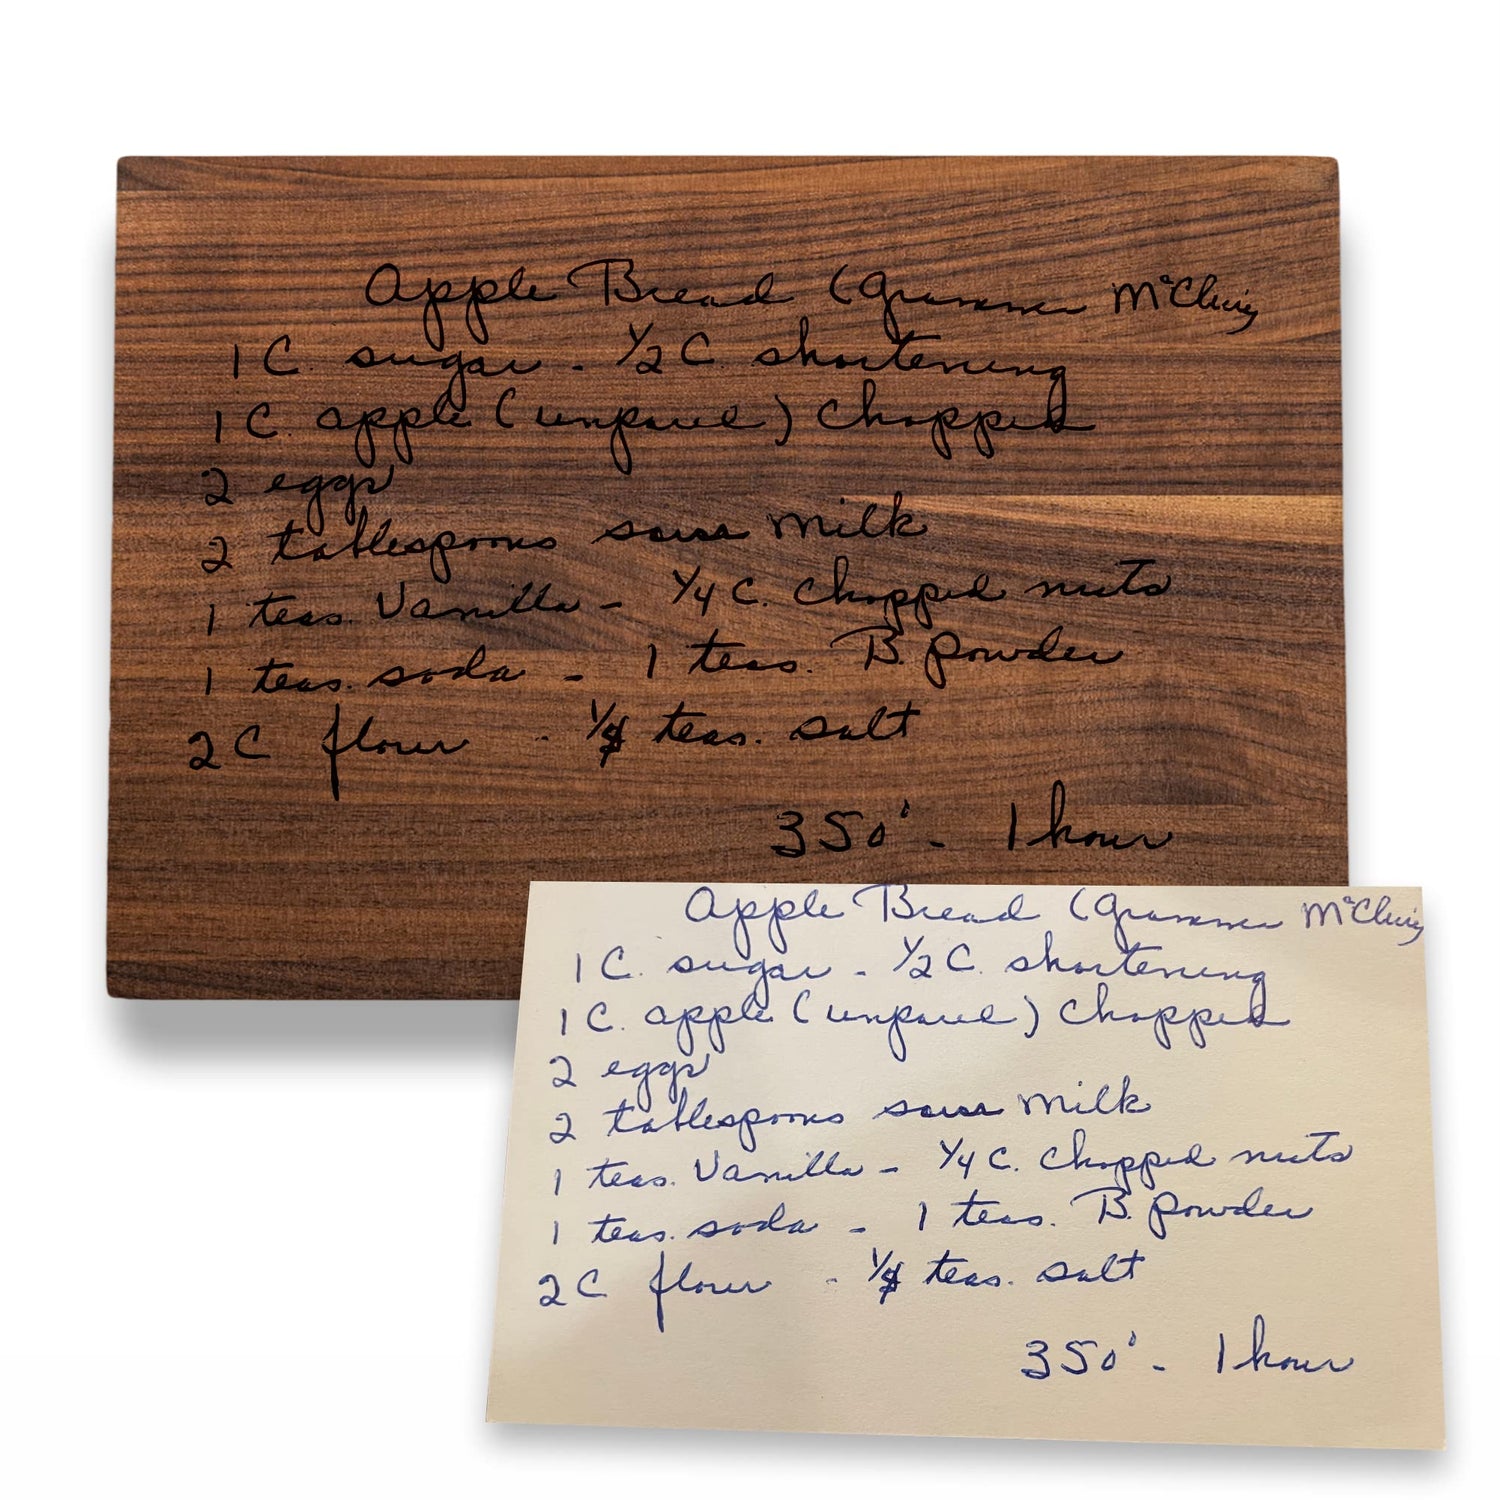 Apple Bread (Grammer McCluig
1 C. sugar - 1/2 C. shortening
1 C. apple (unpared) chopped
2 eggs
2 tablespoons sour milk
1 teas. Vanilla - 1/4 C. chopped nuts
1 teas. soda - 1 teas. B. powder
2 C flour - teas. salt
350° - 1 hour
Apple Bread (Grammer
1 C. sugar - 1/2 C. shortening
1 C. apple (unpared) chopped
2 eggs
2 tablespoons sour milk
1 teas. Vanilla - 1/4 C. chopped nuts
1 teas. soda - 1 teas. B. powder
2 C flour - teas. salt
350° - 1 hour